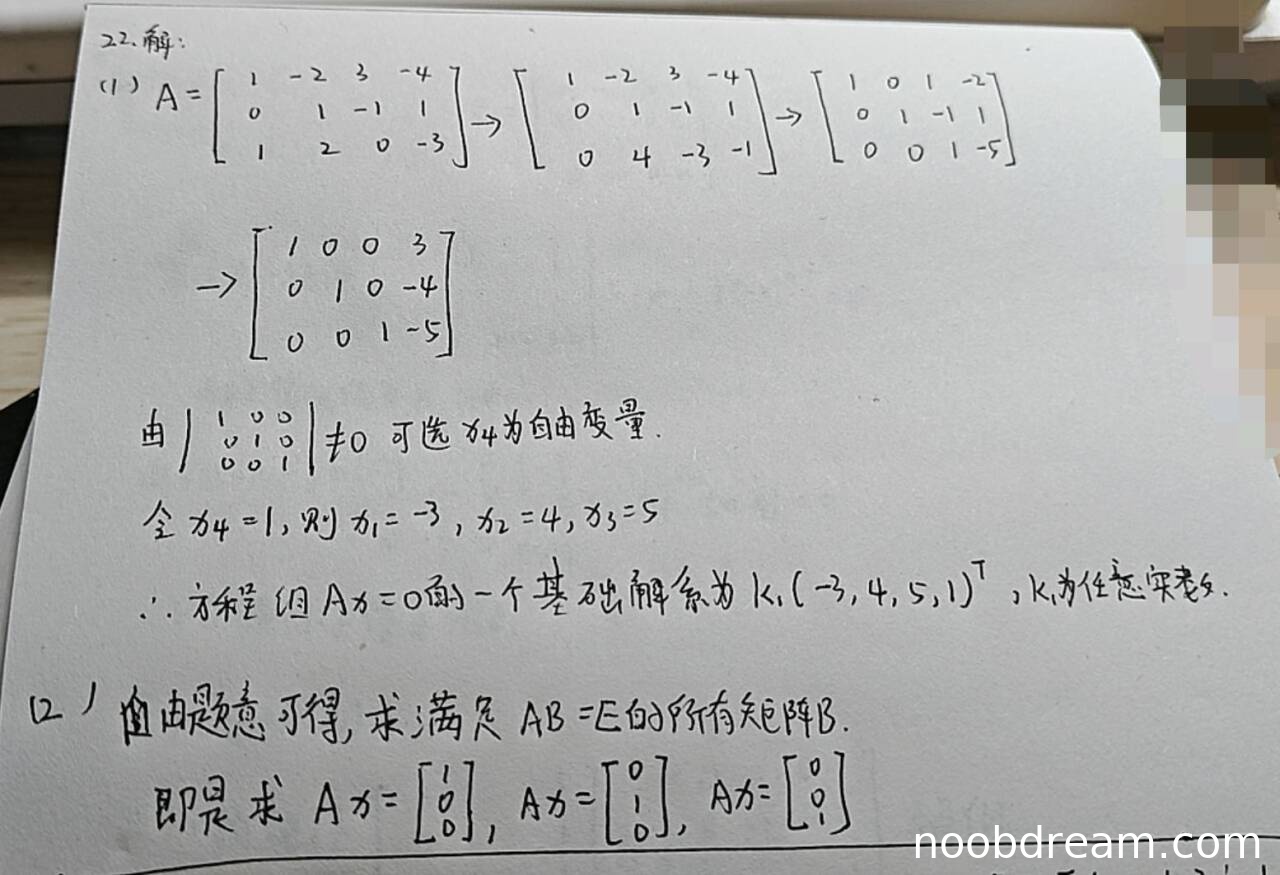 22.解:
(1) A = [1 -2 3 -4; 0 1 -1 1; 1 2 0 -3] → [1 -2 3 -4; 0 1 -1 1; 0 4 -3 -1] → [1 0 1 -2; 0 1 -1 1; 0 0 1 -5]
→ [1 0 0 3; 0 1 0 -4; 0 0 1 -5]
由 |1 0 0; 0 1 0; 0 0 1| ≠ 0 可选 x4为自由变量.
令 x4 = 1, 则 x1 = -3, x2 = 4, x3 = 5
∴ 方程组 Ax = 0 的一个基础解系为 k1(-3, 4, 5, 1)^T, k1为任意实数.
(2) 由题意可得, 求满足 AB = E的所有矩阵B.
即是求 Ax = [1; 0; 0], Ax = [0; 1; 0], Ax = [0; 0; 1]
noobdream.com